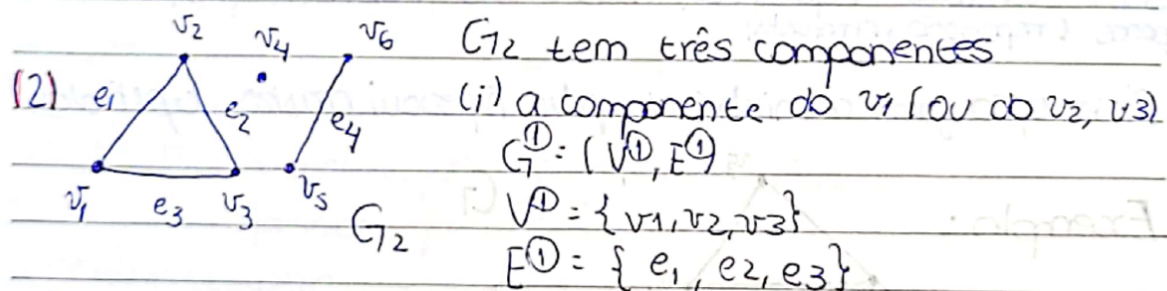 (2)
v2
v4
v6
e1
e2
e4
v1
e3
v3
v5
G2
G2 tem três componentes
(i) a componente do v1 (ou do v2, v3)
G①=(V①, E①)
V①={v1, v2, v3}
E①={e1, e2, e3}